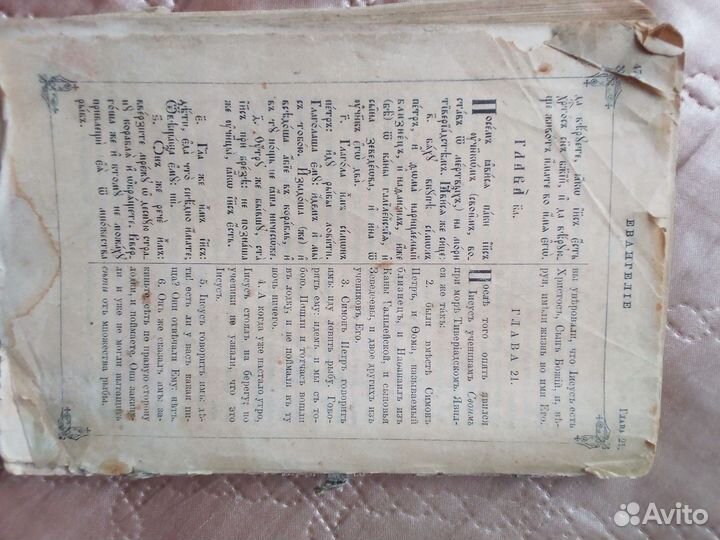 47
ЕВАНГЕЛІЕ
Глава 21.
да вѣруете, ꙗкѡ і҆и҃съ є҆сть
хрⷭ҇то́съ сн҃ъ бж҃ій, и҆ да вѣрую-
ще живо́тъ и҆мате во и҆мѧ є҆гѡ̀.
ГЛАВА̀ к҃а.
Посе́мъ ꙗ҆ви́сѧ па́ки і҆и҃съ
ᲂу҆чн҃кѡ́мъ свои̑мъ, во-
ста́въ ѿ ме́ртвыхъ, на мо́ри
тіверіа́дстѣмъ. Ꙗ҆ви́сѧ же си́це:
в҃. Бѧ́хꙋ вкꙋ́пѣ сі́мѡнъ
пе́тръ, и҆ ѳѡма̀ нарица́емый
близне́цъ, и҆ наѳана́илъ, и҆́же
(бѣ̀) ѿ ка́ны галїле́йскїѧ, и҆
сы̑на зеведе́ѡва, и҆ и҆́на ѿ
ᲂу҆чн҃къ є҆гѡ̀ два̀.
г҃. Глаго́ла и҆̀мъ сі́мѡнъ
пе́тръ: и҆дꙋ̀ ры́бы лови́ти.
Глаго́лаша є҆мꙋ̀: и҆́демъ и҆ мы̀
съ тобо́ю. И҆зыдо́ша (же) и҆
всѣдо́ша а҆́бїе въ кора́бль, и҆
въ тꙋ̀ но́щь не ꙗ҆́ша ничесо́же.
д҃. Оу҆́трꙋ же бы́вшꙋ, ста̀
і҆и҃съ при бре́зѣ: не позна́ша
же ᲂу҆чн҃цы, ꙗ҆́кѡ і҆и҃съ є҆́сть.
є҃. Гл҃а же и҆̀мъ і҆и҃съ:
дѣ́ти, є҆да̀ что̀ снѣ́дно и҆́мате;
Ѿвѣща́ша є҆мꙋ̀: нѝ.
ѕ҃. Ѻ҆́нъ же речѐ и҆̀мъ:
вве́рзите мре́жꙋ ѡ҆ деснꙋ́ю стра-
нꙋ̀ кораблѧ̀, и҆ ѡ҆брѧ́щете. Вве́р-
го́ша же, и҆ ктомꙋ̀ не можа́хꙋ
привлещѝ є҆ѧ̀ ѿ мно́жества
ры́бъ.
вы увѣровали, что Іисусъ есть
Христосъ, Сынъ Божій, и, вѣ-
руя, имѣли жизнь во имя Его.
ГЛАВА 21.
Послѣ того опять явился
Іисусъ ученикамъ Своимъ
при морѣ Тиверіадскомъ. Явил-
ся же такъ:
2. были вмѣстѣ Симонъ
Петръ, и Ѳома, называемый
близнецъ, и Наѳанаилъ изъ
Каны Галилейской, и сыновья
Зеведеевы, и двое другихъ изъ
учениковъ Его.
3. Симонъ Петръ говоритъ
имъ: иду ловить рыбу. Гово-
рятъ ему: идемъ и мы съ то-
бою. Пошли и тотчасъ вошли
въ лодку, и не поймали въ ту
ночь ничего.
4. А когда уже настало утро,
Іисусъ стоялъ на берегу; но
ученики не узнали, что это
Іисусъ.
5. Іисусъ говоритъ имъ: дѣ-
ти! есть ли у васъ какая пи-
ща? Они отвѣчали Ему: нѣтъ.
6. Онъ же сказалъ имъ: за-
киньте сѣть по правую сторону
лодки, и поймаете. Они закину-
ли и уже не могли вытащить
сѣти отъ множества рыбы.
Avito